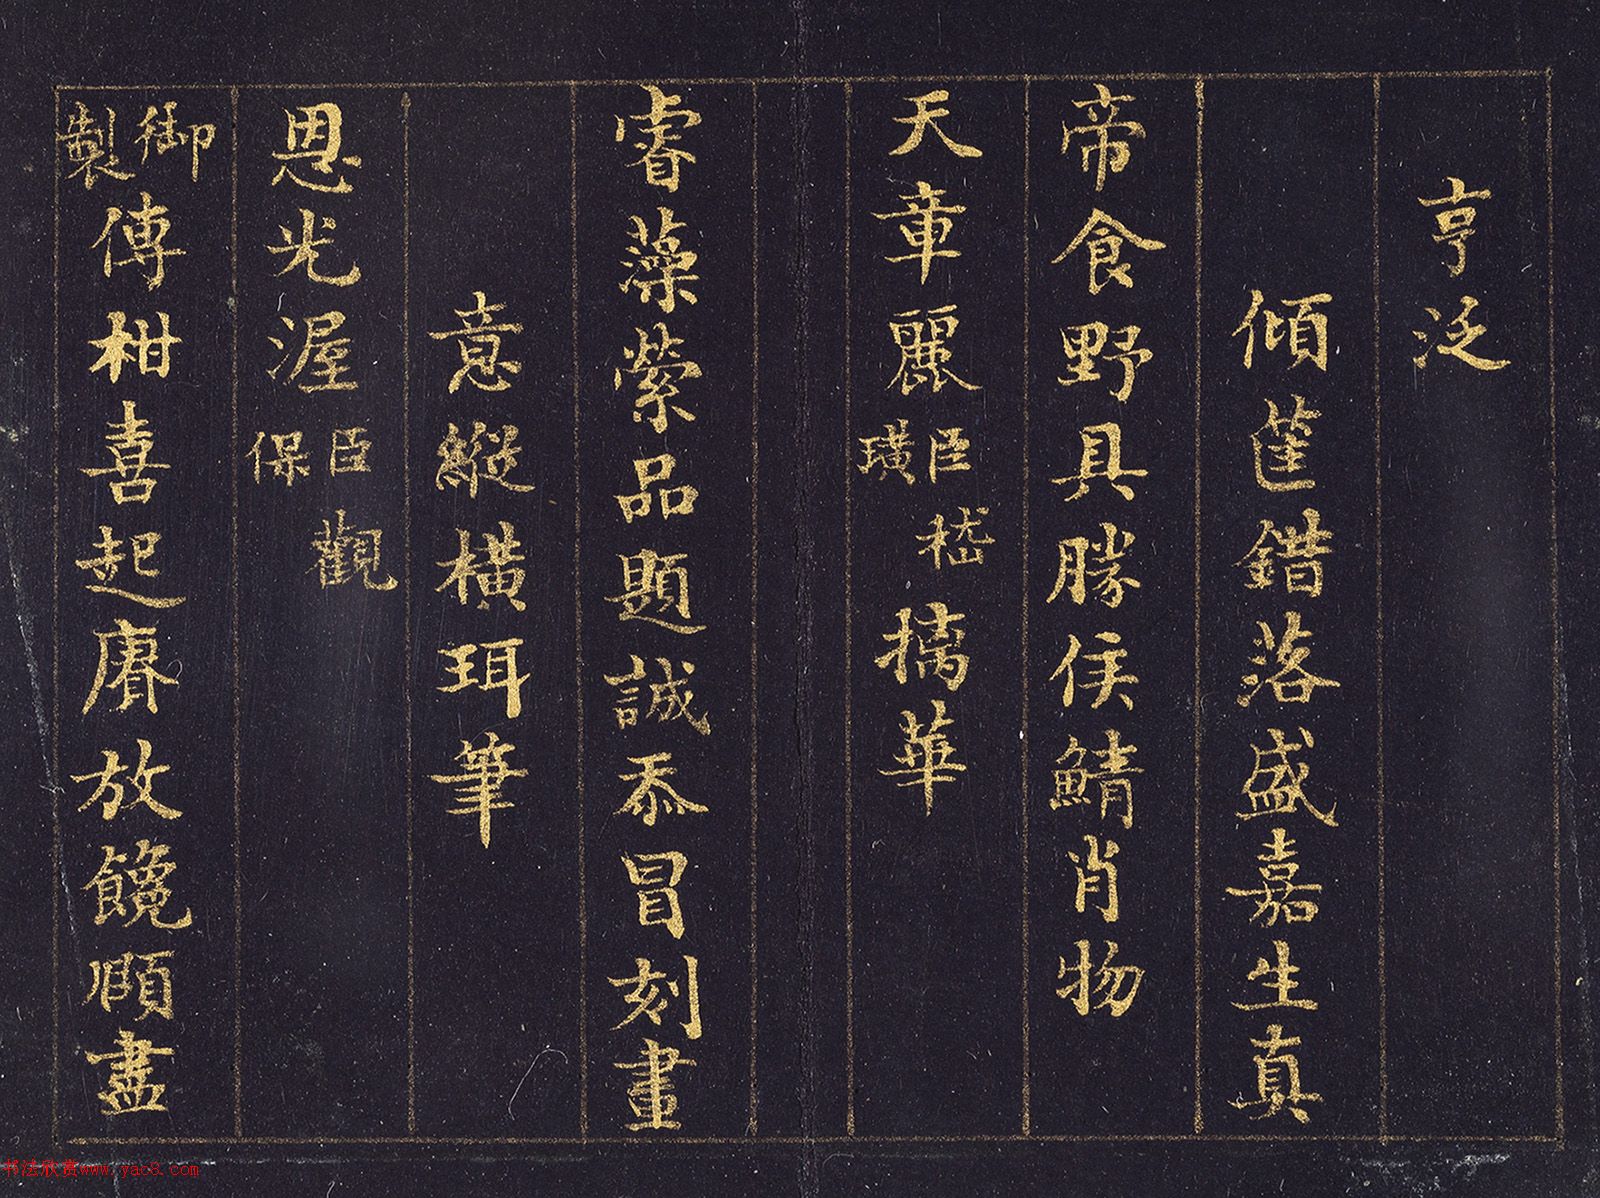 亨泛
傾筐錯落盛嘉生真
帝食野具勝侯鯖肖物
天章麗臣璜嵇摛華
睿藻縈品題誠忝冒刻畫
意縱橫珥筆
恩光渥臣保觀
御製傳柑喜起賡放饞頤盡
书法欣赏www.yac8.com